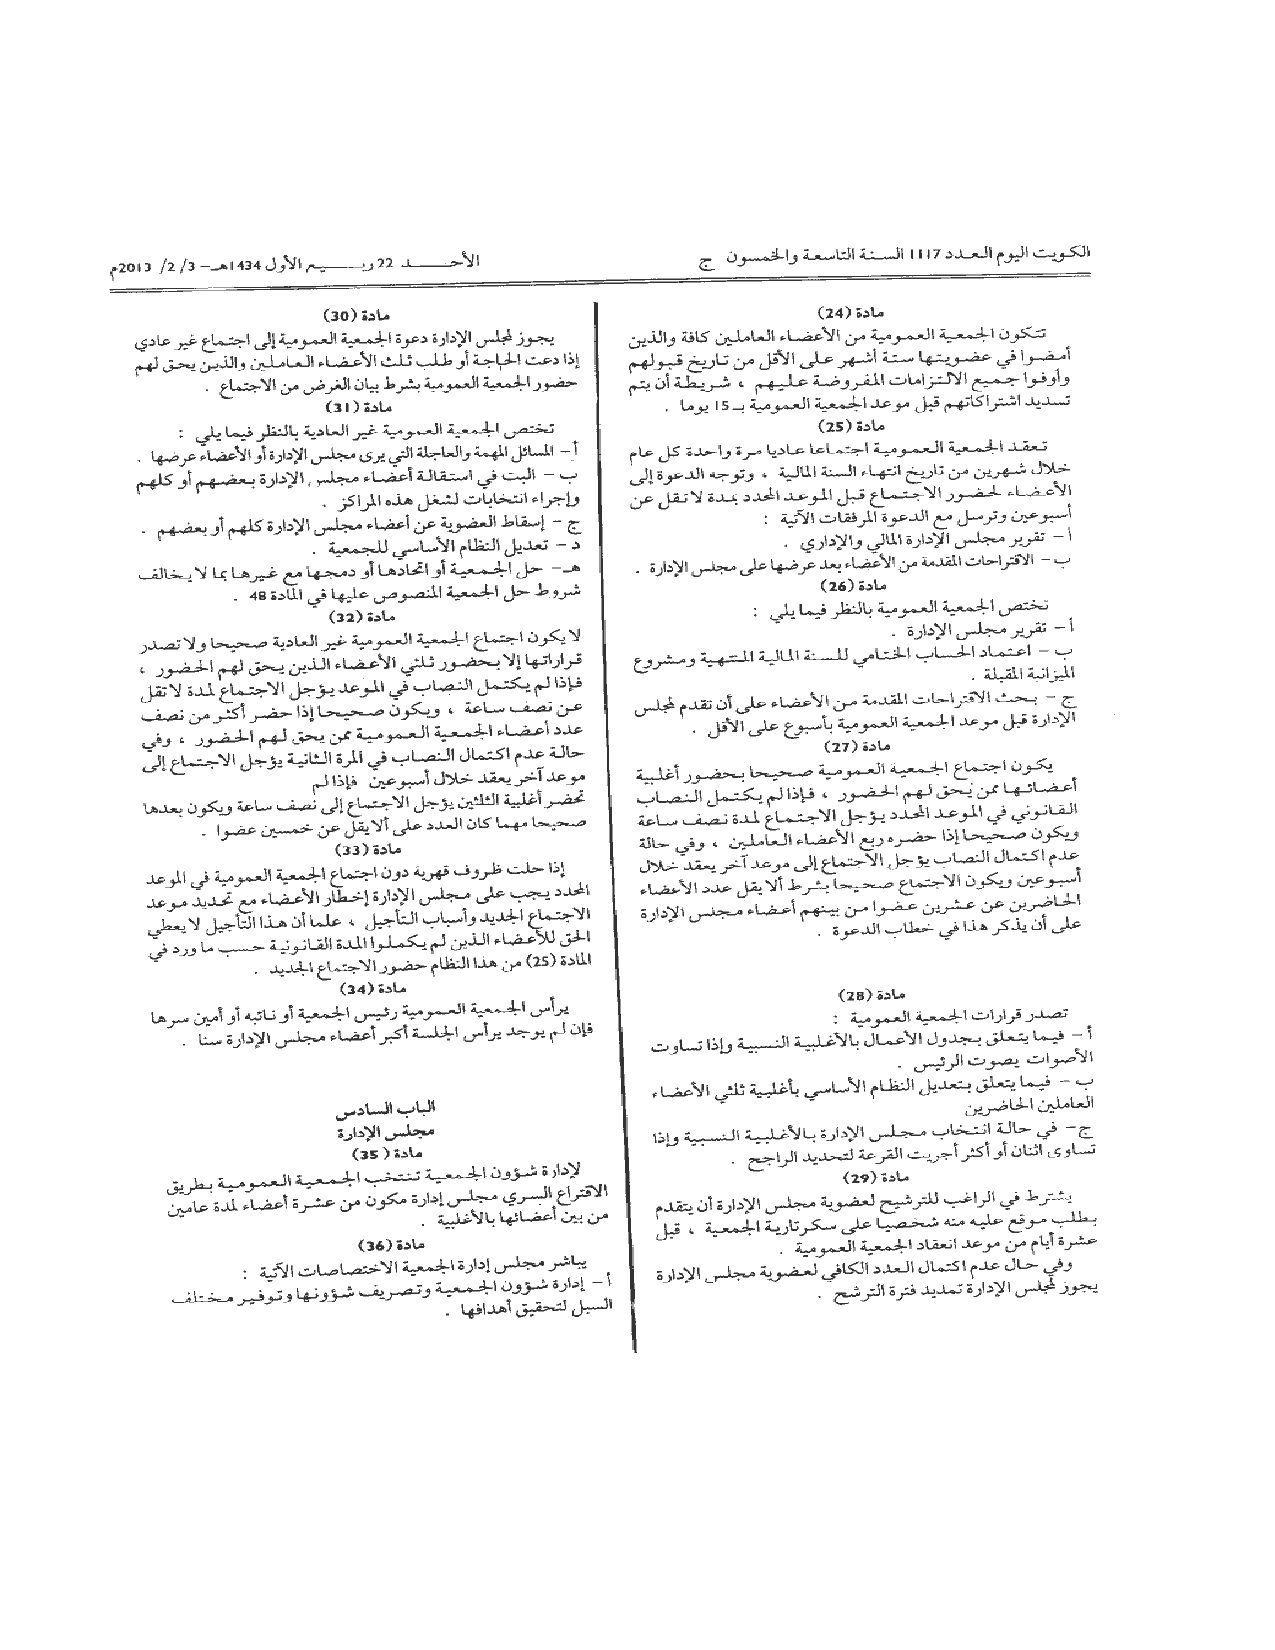 الكويت اليوم العدد 1117 السنة التاسعة والخمسون ج
الأحـــد 22 ربـــيع الأول 1434هـ – 3/ 2/ 2013م
مادة (24)
تتكون الجمعية العمومية من الأعضاء العاملين كافة والذين
أمضوا في عضويتها ستة أشهر على الأقل من تاريخ قبولهم
وأوفوا جميع الالتزامات المفروضة عليهم ، شريطة أن يتم
تسديد اشتراكاتهم قبل موعد الجمعية العمومية بـ 15 يوما .
مادة (25)
تعقد الجمعية العمومية اجتماعا عاديا مرة واحدة كل عام
خلال شهرين من تاريخ انتهاء السنة المالية ، وتوجه الدعوة إلى
الأعضاء لحضور الاجتماع قبل الموعد المحدد بمدة لا تقل عن
أسبوعين وترسل مع الدعوة المرفقات الآتية :
أ – تقرير مجلس الإدارة المالي والإداري .
ب – الاقتراحات المقدمة من الأعضاء بعد عرضها على مجلس الإدارة .
مادة (26)
تختص الجمعية العمومية بالنظر فيما يلي :
أ – تقرير مجلس الإدارة .
ب – اعتماد الحساب الختامي للسنة المالية المنتهية ومشروع
الميزانية المقبلة .
ج – بحث الاقتراحات المقدمة من الأعضاء على أن تقدم لمجلس
الإدارة قبل موعد الجمعية العمومية بأسبوع على الأقل .
مادة (27)
يكون اجتماع الجمعية العمومية صحيحا بحضور أغلبية
أعضائها ممن يحق لهم الحضور ، فإذا لم يكتمل النصاب
القانوني في الموعد المحدد يؤجل الاجتماع لمدة نصف ساعة
ويكون صحيحا إذا حضره ربع الأعضاء العاملين ، وفي حالة
عدم اكتمال النصاب يؤجل الاجتماع إلى موعد آخر يعقد خلال
أسبوعين ويكون الاجتماع صحيحا بشرط ألا يقل عدد الأعضاء
الحاضرين عن عشرين عضوا من بينهم أعضاء مجلس الإدارة
على أن يذكر هذا في خطاب الدعوة .
مادة (28)
تصدر قرارات الجمعية العمومية :
أ – فيما يتعلق بجدول الأعمال بالأغلبية النسبية وإذا تساوت
الأصوات يصوت الرئيس .
ب – فيما يتعلق بتعديل النظام الأساسي بأغلبية ثلثي الأعضاء
العاملين الحاضرين
ج – في حالة انتخاب مجلس الإدارة بالأغلبية النسبية وإذا
تساوى اثنان أو أكثر أجريت القرعة لتحديد الراجح .
مادة (29)
يشترط في الراغب للترشيح لعضوية مجلس الإدارة أن يتقدم
بطلب موقع عليه منه شخصيا على سكرتارية الجمعية ، قبل
عشرة أيام من موعد انعقاد الجمعية العمومية .
وفي حال عدم اكتمال العدد الكافي لعضوية مجلس الإدارة
يجوز لمجلس الإدارة تمديد فترة الترشح .
مادة (30)
يجوز لمجلس الإدارة دعوة الجمعية العمومية إلى اجتماع غير عادي
إذا دعت الحاجة أو طلب ثلث الأعضاء العاملين والذين يحق لهم
حضور الجمعية العمومية بشرط بيان الغرض من الاجتماع .
مادة (31)
تختص الجمعية العمومية غير العادية بالنظر فيما يلي :
أ – المسائل المهمة والعاجلة التي يرى مجلس الإدارة أو الأعضاء عرضها .
ب – البت في استقالة أعضاء مجلس الإدارة بعضهم أو كلهم
وإجراء انتخابات لشغل هذه المراكز .
ج – إسقاط العضوية عن أعضاء مجلس الإدارة كلهم أو بعضهم .
د – تعديل النظام الأساسي للجمعية .
هـ – حل الجمعية أو اتحادها أو دمجها مع غيرها بما لا يخالف
شروط حل الجمعية المنصوص عليها في المادة 48 .
مادة (32)
لا يكون اجتماع الجمعية العمومية غير العادية صحيحا ولا تصدر
قراراتها إلا بحضور ثلثي الأعضاء الذين يحق لهم الحضور ،
فإذا لم يكتمل النصاب في الموعد يؤجل الاجتماع لمدة لا تقل
عن نصف ساعة ، ويكون صحيحا إذا حضر أكثر من نصف
عدد أعضاء الجمعية العمومية ممن يحق لهم الحضور ، وفي
حالة عدم اكتمال النصاب في المرة الثانية يؤجل الاجتماع إلى
موعد آخر يعقد خلال أسبوعين فإذا لم
تحضر أغلبية الثلثين يؤجل الاجتماع إلى نصف ساعة ويكون بعدها
صحيحا مهما كان العدد على ألا يقل عن خمسين عضوا .
مادة (33)
إذا حلت ظروف قهرية دون اجتماع الجمعية العمومية في الموعد
المحدد يجب على مجلس الإدارة إخطار الأعضاء مع تحديد موعد
الاجتماع الجديد وأسباب التأجيل ، علما أن هذا التأجيل لا يعطي
الحق للأعضاء الذين لم يكملوا المدة القانونية حسب ما ورد في
المادة (25) من هذا النظام حضور الاجتماع الجديد .
مادة (34)
يرأس الجمعية العمومية رئيس الجمعية أو نائبه أو أمين سرها
فإن لم يوجد يرأس الجلسة أكبر أعضاء مجلس الإدارة سنا .
الباب السادس
مجلس الإدارة
مادة (35)
لإدارة شؤون الجمعية تنتخب الجمعية العمومية بطريق
الاقتراع السري مجلس إدارة مكون من عشرة أعضاء لمدة عامين
من بين أعضائها بالأغلبية .
مادة (36)
يباشر مجلس إدارة الجمعية الاختصاصات الآتية :
أ – إدارة شؤون الجمعية وتصريف شؤونها وتوفير مختلف
السبل لتحقيق أهدافها .